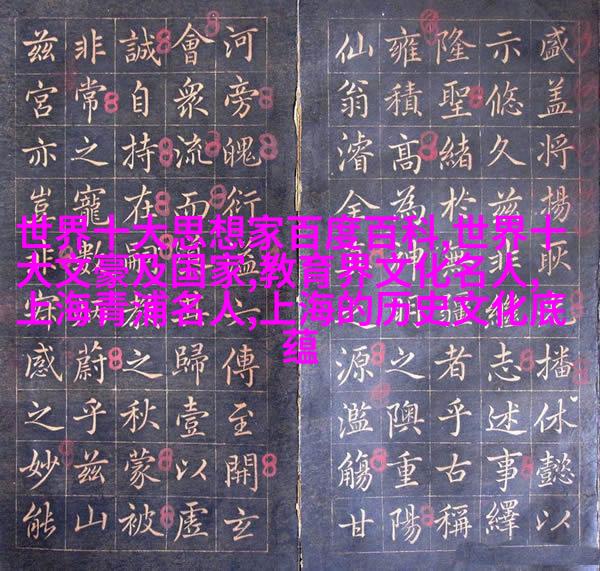 世界十大思想家百度百科,世界十
大文豪及国家,教育界文化名人,
上海青浦名人,上海的历史文化底
蕴
盛盖将揚耿播休懿以
示悠久兹志述事繹
隆聖緒於無疆者乎古稱
雍積高為神明之隩重陽
仙翁濬全源濫觴甘
河旁魄衍傳至開玄
會衆流而歸壹以虛
誠自持在嗣之秋蒙被
非常之寵數蔚乎兹山
兹宮亦豈感之妙能